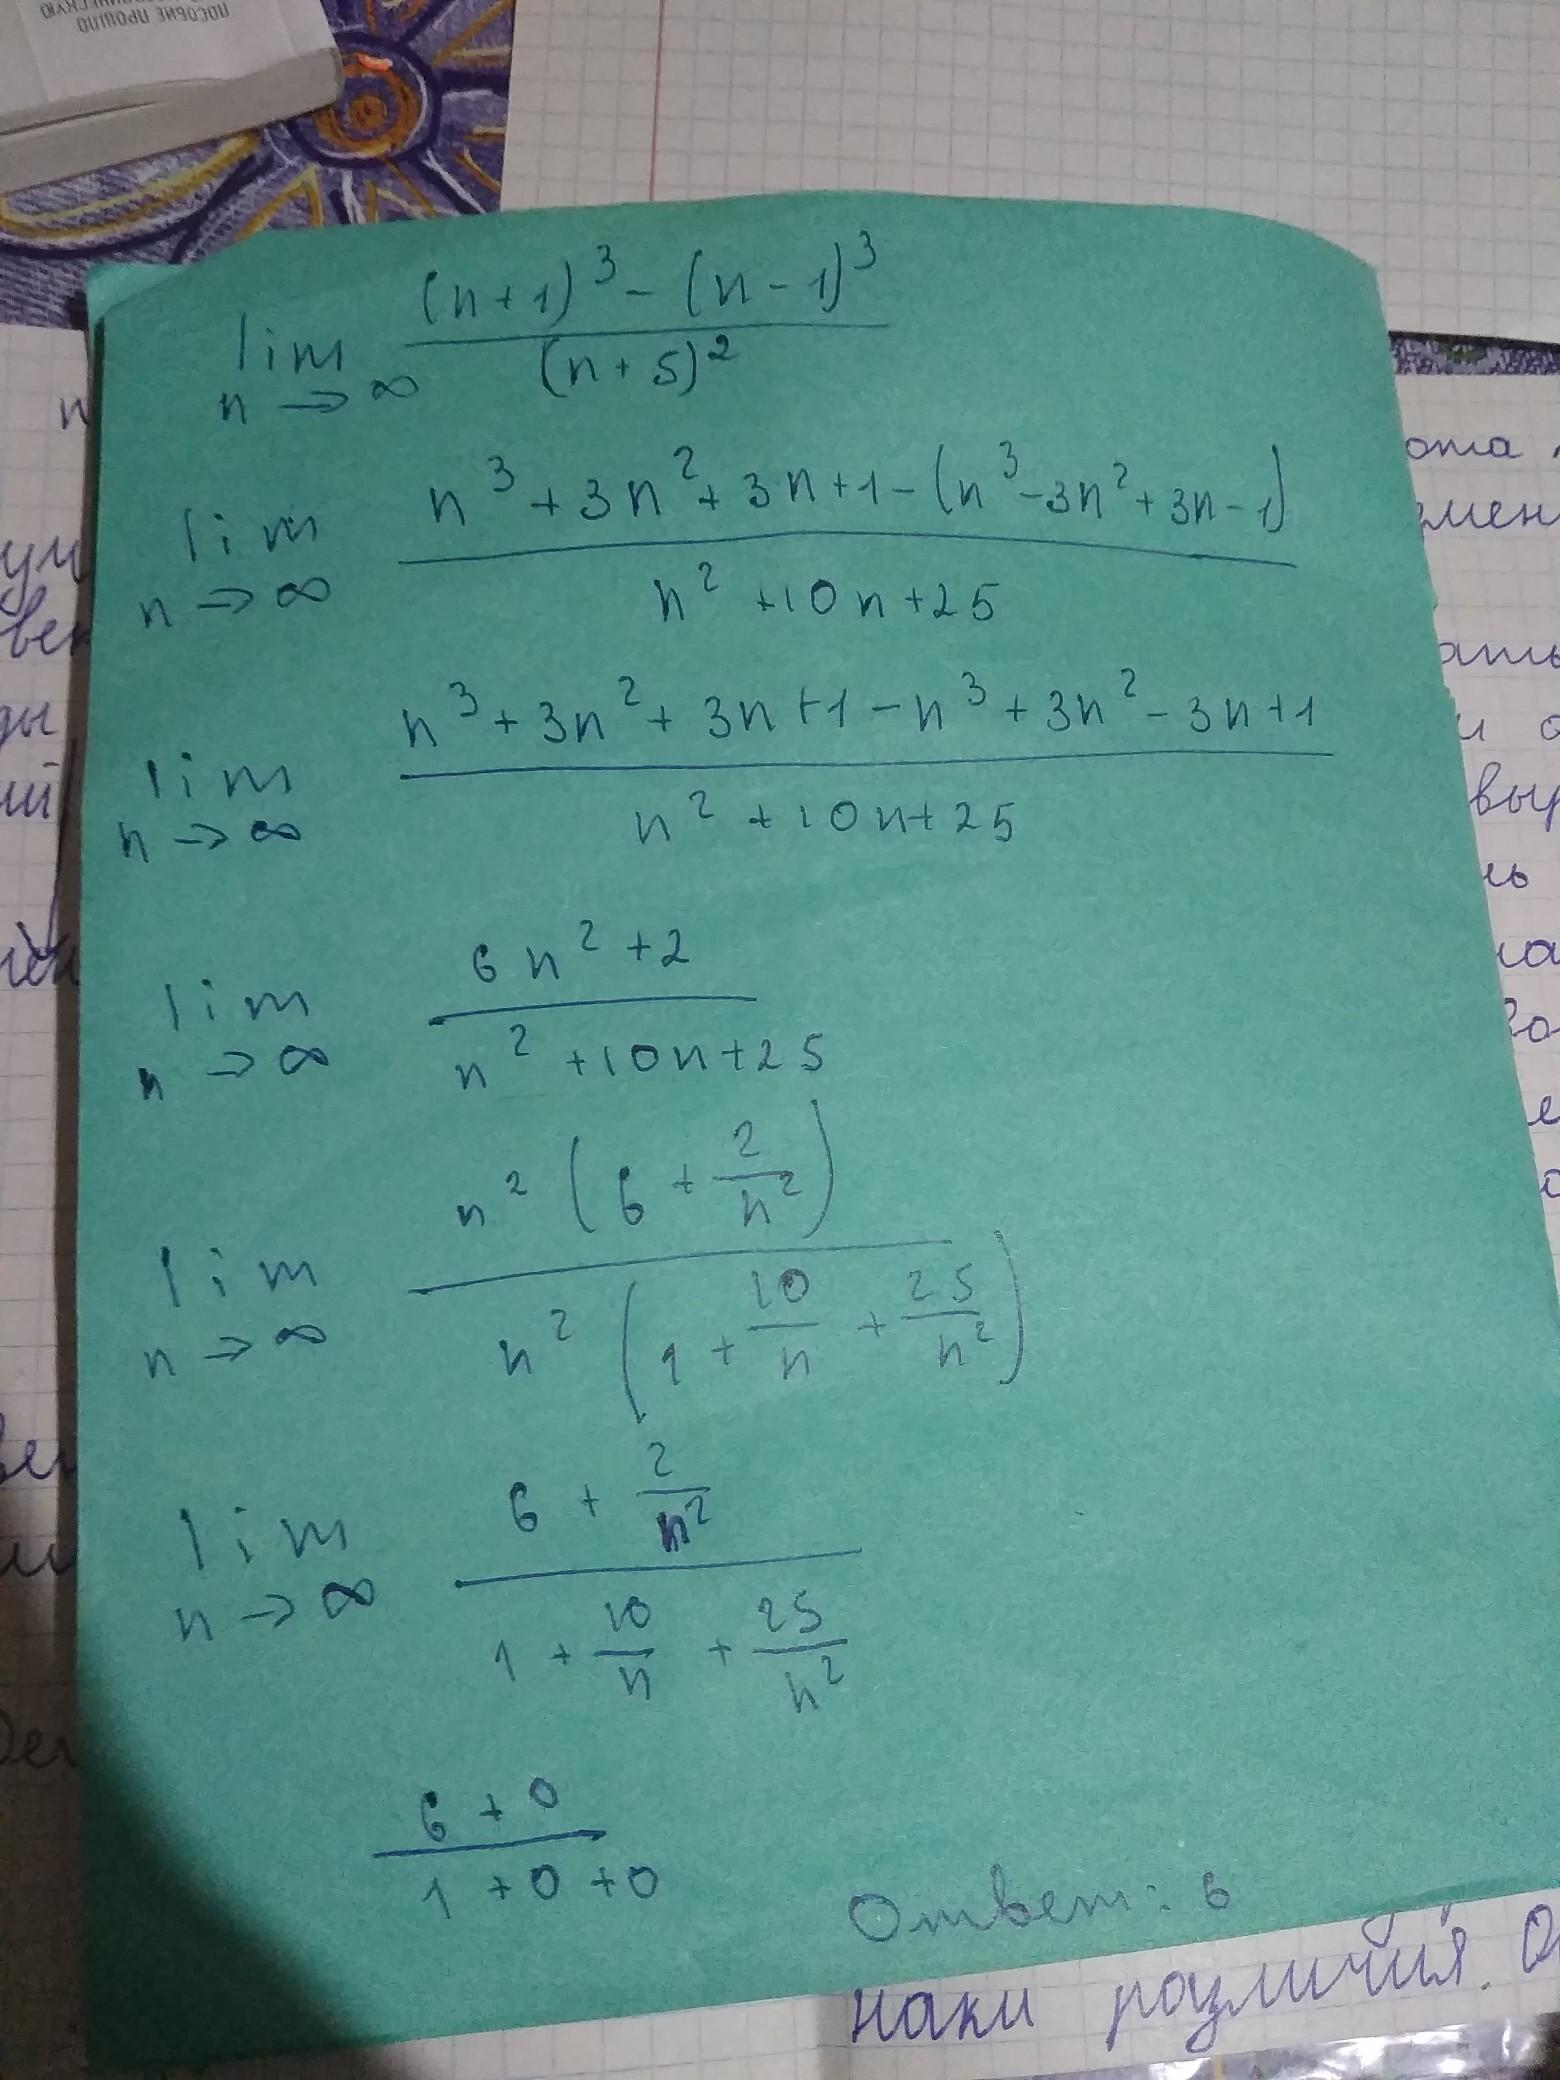 ПОСОБИЕ ПРОШЛО
lim n → ∞ (n + 1)³ - (n - 1)³ / (n + 5)²
lim n → ∞ n³ + 3n² + 3n + 1 - (n³ - 3n² + 3n - 1) / n² + 10n + 25
lim n → ∞ n³ + 3n² + 3n + 1 - n³ + 3n² - 3n + 1 / n² + 10n + 25
lim n → ∞ 6n² + 2 / n² + 10n + 25
lim n → ∞ n² (6 + 2/n²) / n² (1 + 10/n + 25/n²)
lim n → ∞ 6 + 2/n² / 1 + 10/n + 25/n²
6 + 0 / 1 + 0 + 0
Ответ: 6
наки различия.